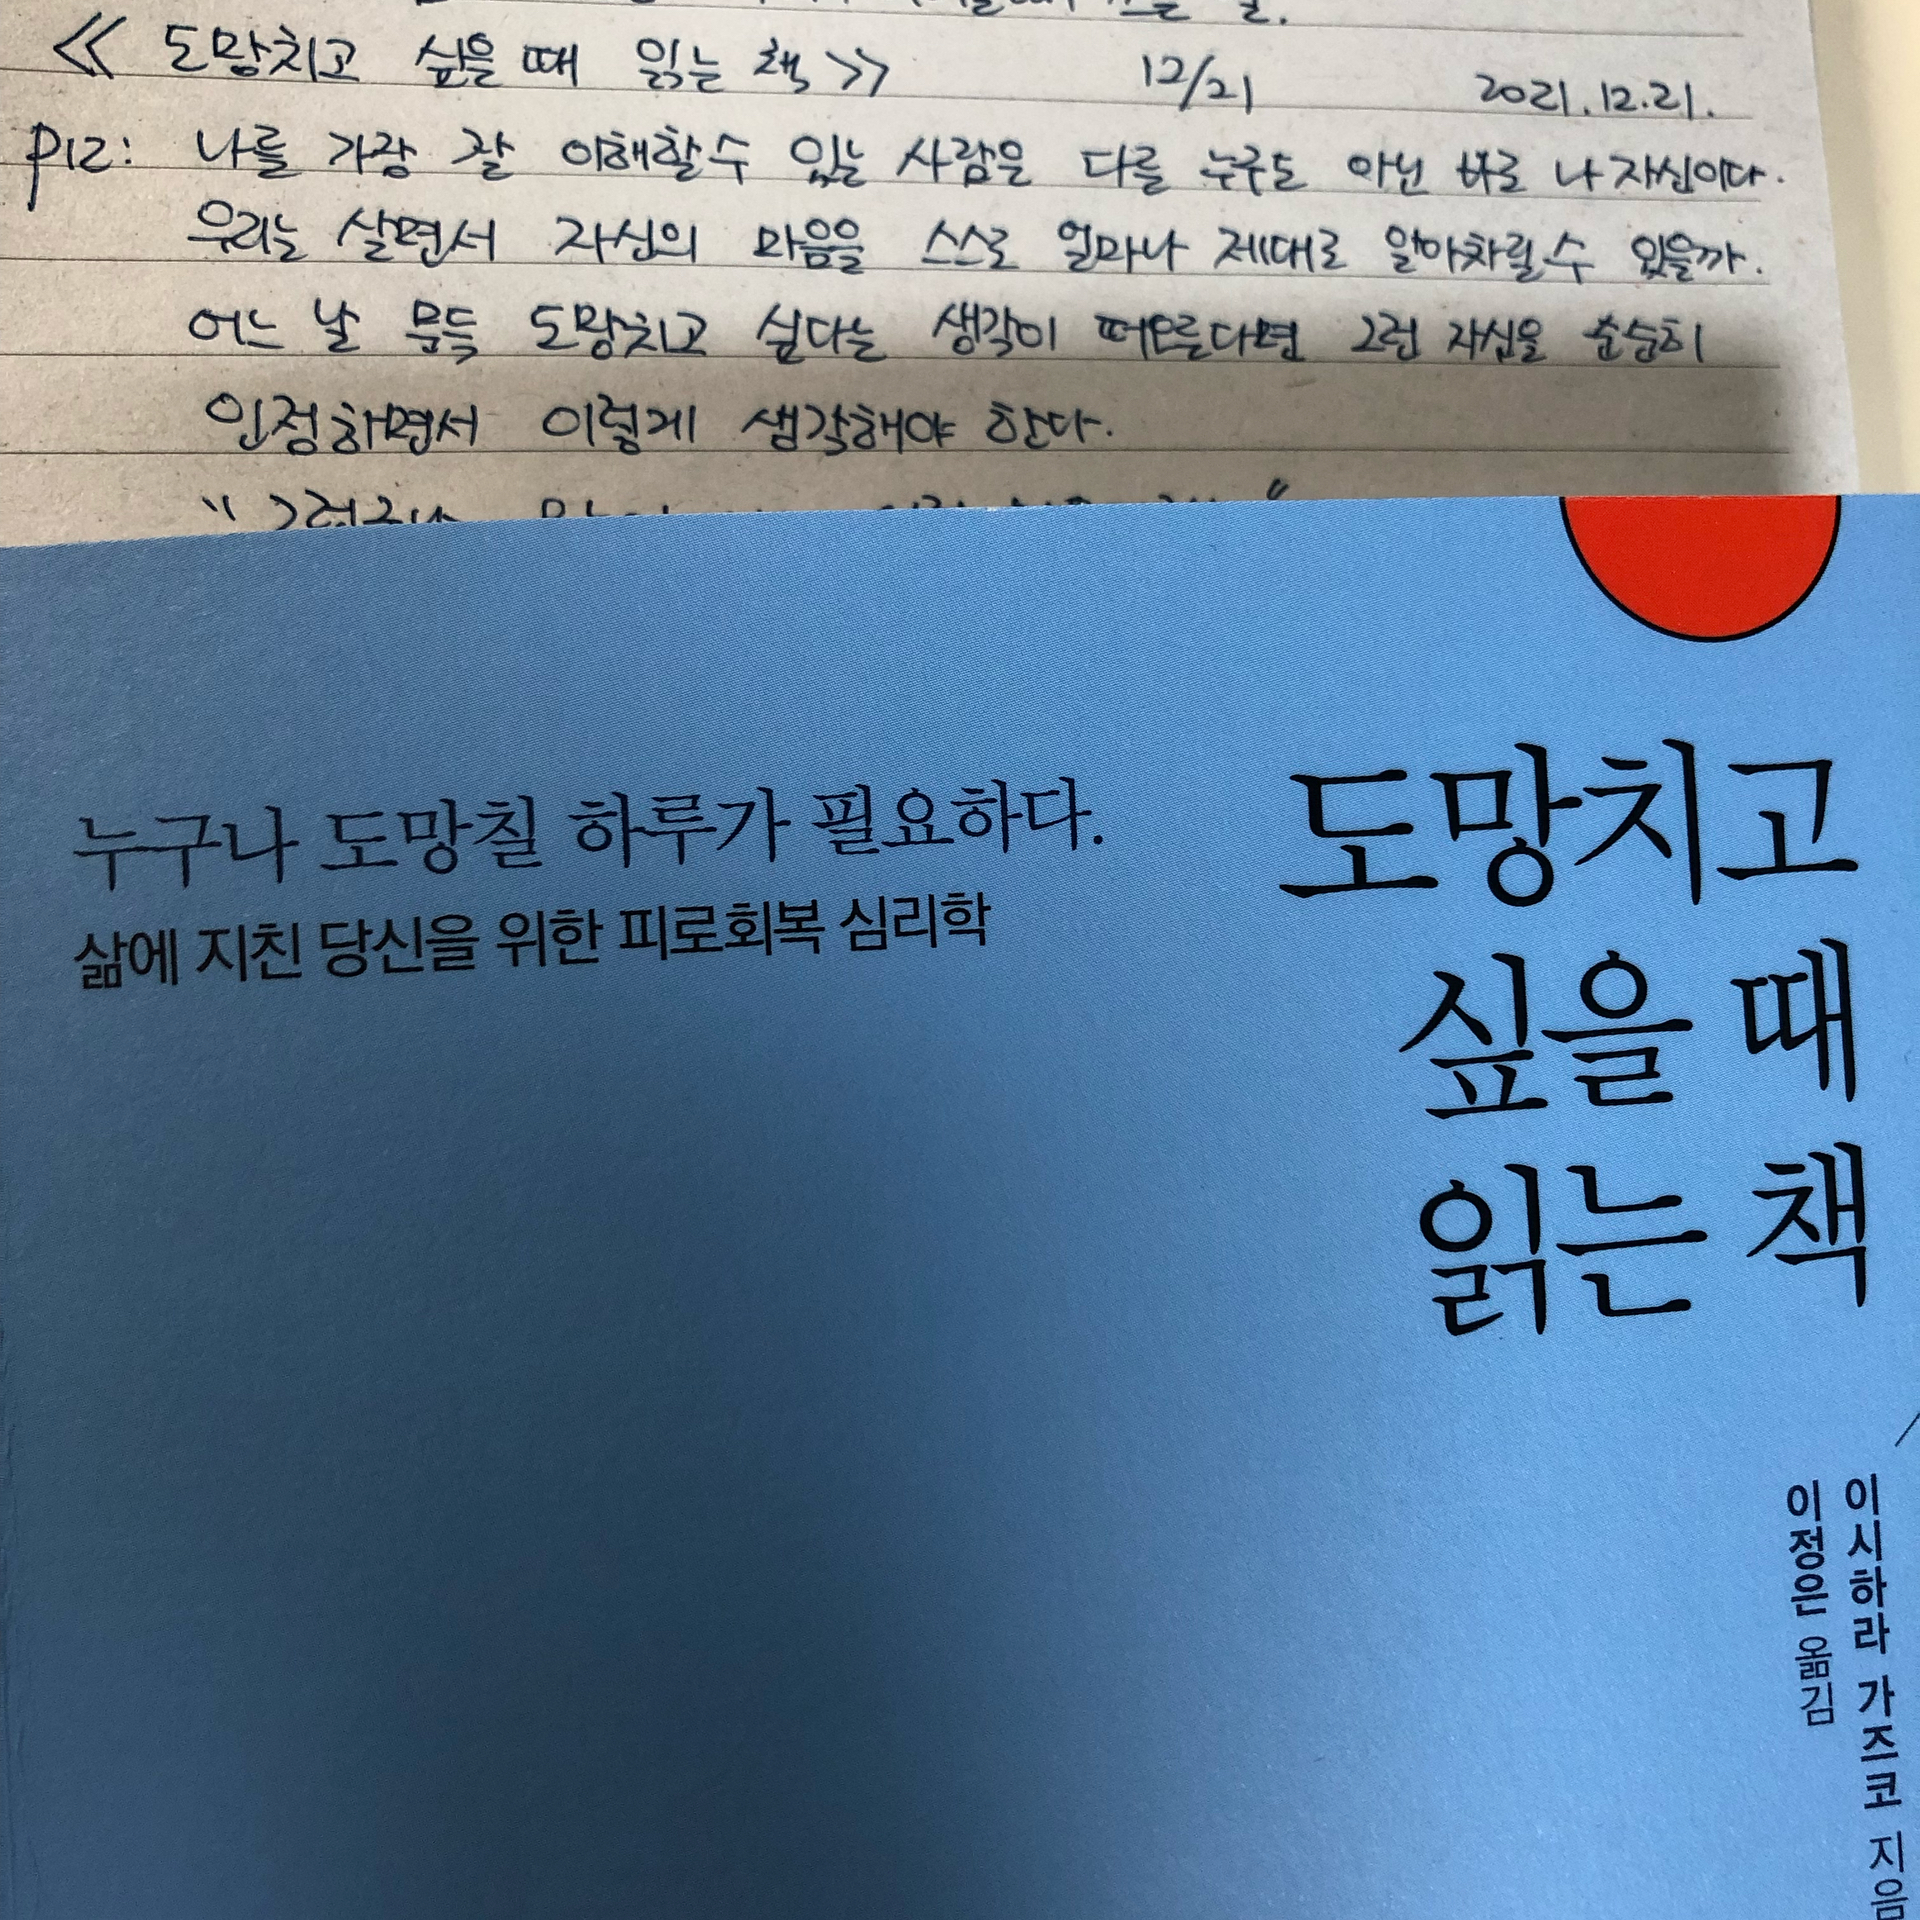 << 도망치고 싶을 때 읽는 책 >> 12/21 2021.12.21.
P12: 나를 가장 잘 이해할 수 있는 사람은 다를 누구도 아닌 바로 나 자신이다.
우리는 살면서 자신의 마음을 스스로 얼마나 제대로 알아차릴 수 있을까.
어느 날 문득 도망치고 싶다는 생각이 떠오른다면 그런 자신을 순순히
인정하면서 이렇게 생각해야 한다.
누구나 도망칠 하루가 필요하다.
삶에 지친 당신을 위한 피로회복 심리학
도망치고
싶을 때
읽는 책
이시하라 가즈코 지음
이정은 옮김